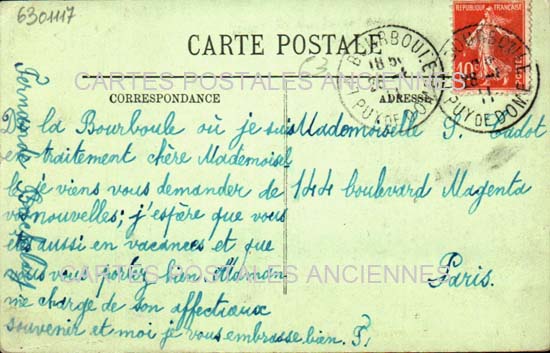 6301117
CARTE POSTALE
CARTES POSTALES ANCIENNES
CORRESPONDANCE
ADRESSE
RÉPUBLIQUE FRANÇAISE
10
POSTES
BOURBOULE
18
PUY DE DOME
BOURBOULE
PUY DE DOME
De la Bourboule où je suis
en traitement chère Mademoisel
le je viens vous demander de
vos nouvelles; j'espère que vous
êtes aussi en vacances et que
vous vous portez bien. Maman
me charge de son affectueux
souvenir et moi je vous embrasse bien. F.
Fernande
Mademoiselle S. Cadot
144 boulevard Magenta
Paris.
CARTES POSTALES ANCIENNES